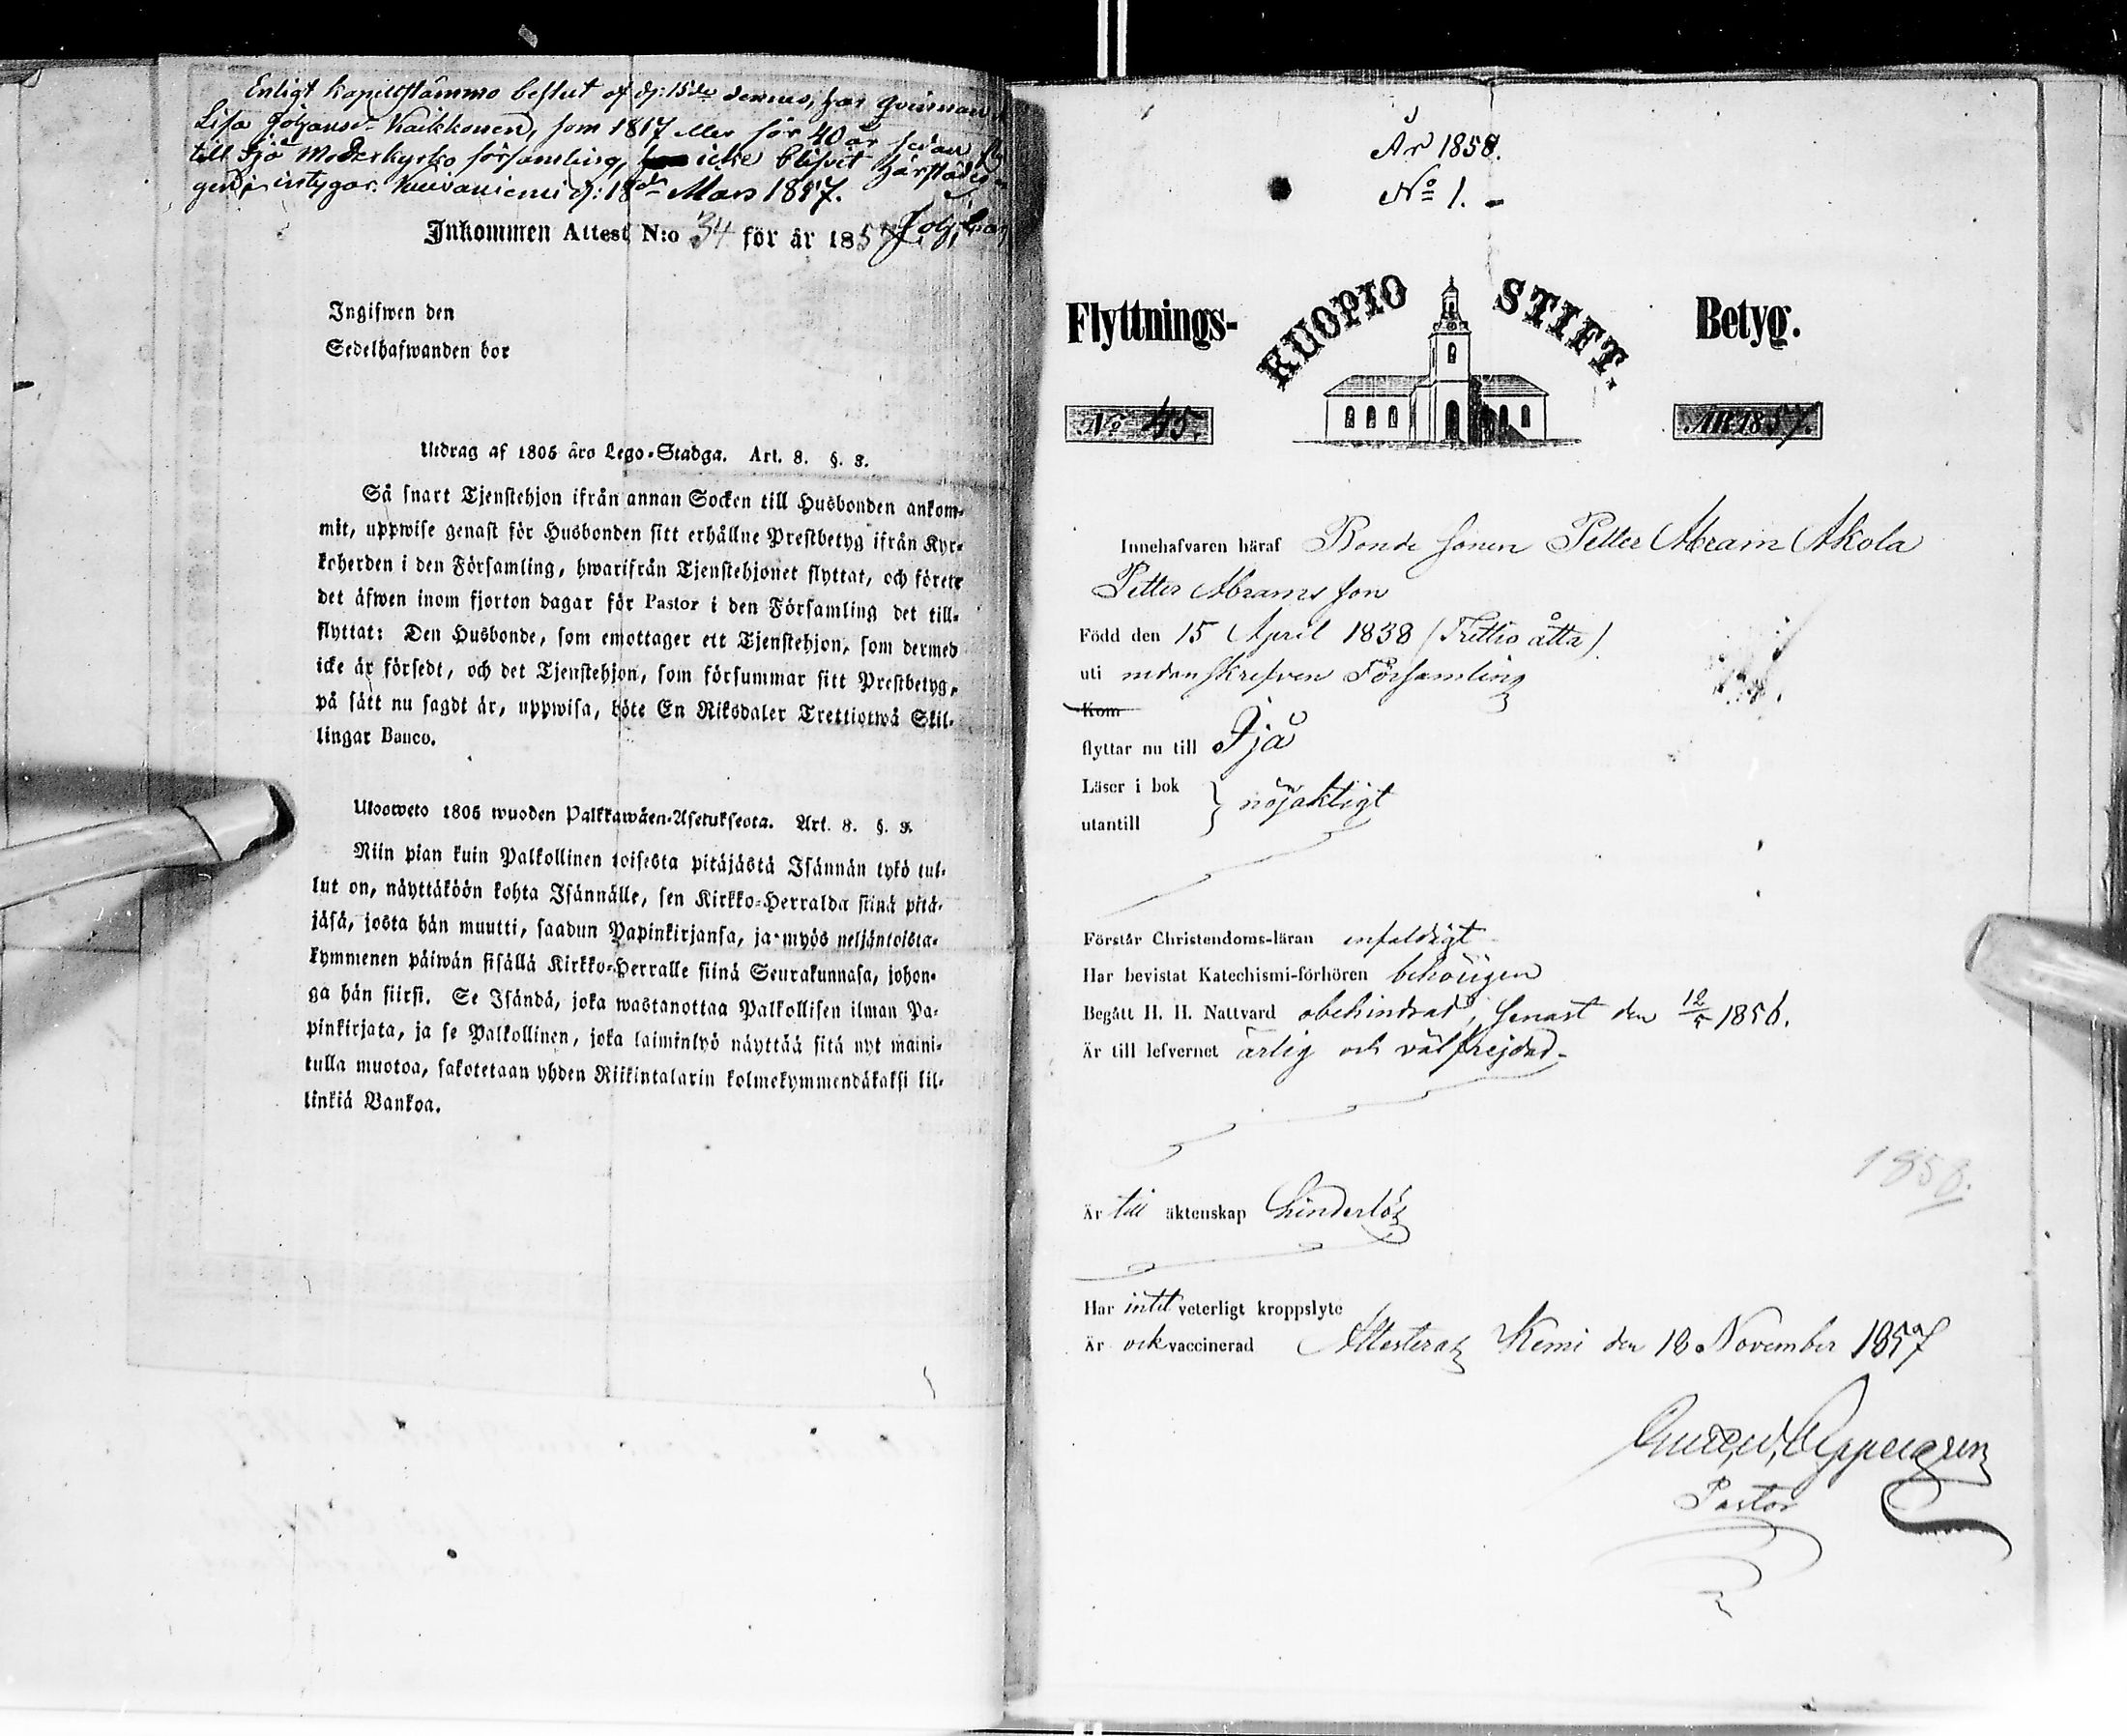 Enligt kapellstämmo beslut af d: 15de dennes, har qvinnan
Lisa Johansdr Kaikkonen, som 1817 eller för 40 år sedan
till Ijå Moderkyrko församling, icke blifvit härstädes
intygar. Kuivaniemi d: 18de Mars 1857.
Inkommen Attest N:o 34 för år 1857
Ingifwen den
Sedelhafwanden bor
Utdrag af 1805 års Lego-Stadga. Art. 8. §. 3.
Så snart Tjenstehjon ifrån annan Socken till Husbonden ankom-
mit, uppwise genast för Husbonden sitt erhållne Prestbetyg ifrån Kyr-
koherden i den Församling, hwarifrån Tjenstehjonet flyttat, och förete
det äfwen inom fjorton dagar för Pastor i den Församling det till-
flyttat: Den Husbonde, som emottager ett Tjenstehjon, som dermed
icke är försedt, och det Tjenstehjon, som försummar sitt Prestbetyg,
på sätt nu sagdt är, uppwisa, böte En Riksdaler Trettiotwå Skil-
lingar Banco.
Ulosweto 1805 wuoden Palkkawäen-Asetuksesta. Art. 8. §. 3.
Niin pian kuin Palkollinen toisesta pitäjästä Isännän tykö tul-
lut on, näyttäköön kohta Isännälle, sen Kirkko-Herralda siinä pitä-
jäsä, josta hän muutti, saadun Papinkirjansa, ja myös neljäntoista-
kymmenen päiwän sisällä Kirkko-Herralle siinä Seurakunnasa, johon-
ga hän siirsi. Se Isändä, joka wastanottaa Palkollisen ilman Pa-
pinkirjata, ja se Palkollinen, joka laiminlyö näyttää sitä nyt maini-
tulla muotoa, sakotetaan yhden Riikintalarin kolmekymmendäkaksi kil-
linkiä Bankoa.
År 1858.
No 1.
Flyttnings- KUOPIO STIFT. Betyg.
No 45. ÅR 1857.
Innehafvaren häraf Bonde sonen Petter Abram Akola
Petter Abrams son
Född den 15 April 1838 (Trettio åtta)
uti nedanskrefven Församling
Kom
flyttar nu till Ijå
Läser i bok
utantill } nöjaktigt
Förstår Christendoms-läran enfaldigt
Har bevistat Katechismi-förhören behörigen
Begått H. H. Nattvard obehindrad, senast den 12/5 1856.
Är till lefvernet ärlig och välfrejdad
1858.
Är till äktenskap hinderlös
Har intet veterligt kroppslyte
Är ock vaccinerad Attesterar Kemi den 18 November 1857
Pastor